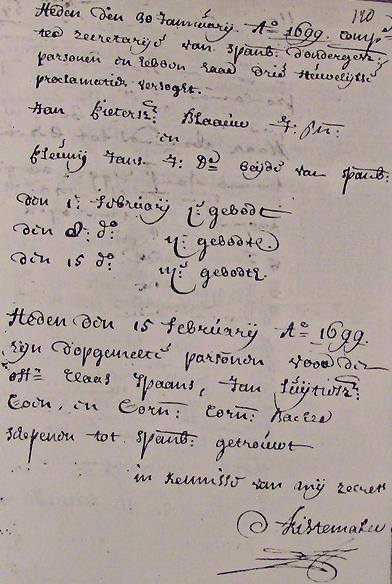 120
Heden den 30 Januarij Aº 1699. comp:
ter secretarije van spanb: d'ondergesz:
parsonen en hebben haar drie Huwelijkse
proclamatien versogt.
Jan Pietersz: Blaauw J: m:
en
Jans J: Dr beijde van spanb:
den 1: Februarij 1e gebodt
den 8: dº 11e gebodt
den 15 dº 111e gebodt
Heden den 15 Februarij Aº 1699
zijn d'opgemelte parsonen voor den
offr Claas Spaans, Jan
Coen, en Corn: Corn: Backer
schepenen tot spanb: getrouwt
in kennisse van mij secrets
Kistemaker